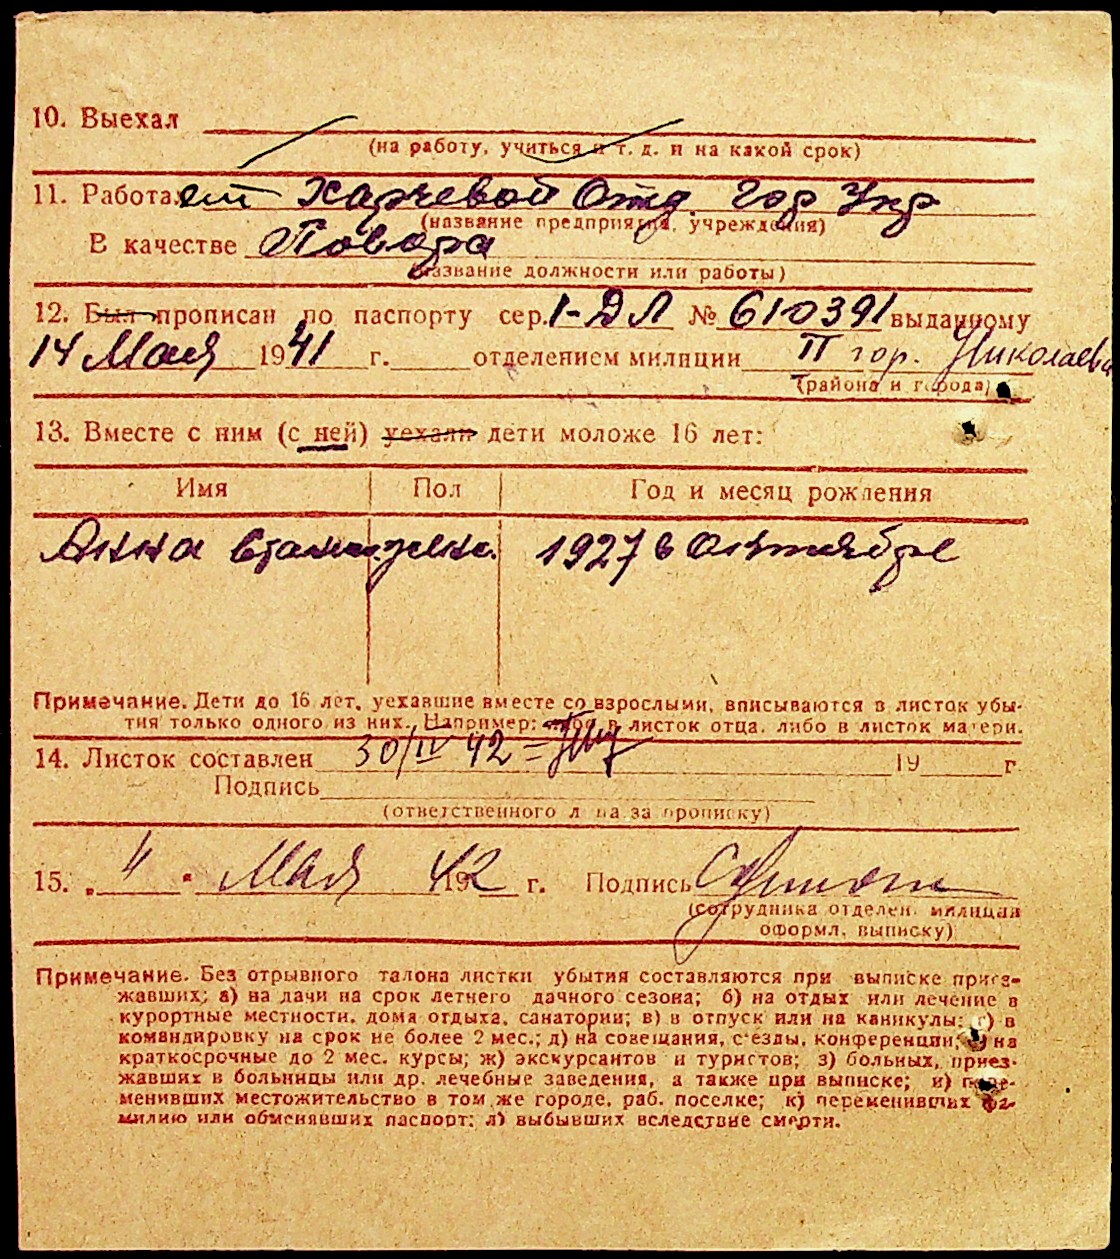 10. Выехал
(на работу, учиться и т. д. и на какой срок)
11. Работает Харчевой Отд. Гор Укр
(название предприятия, учреждения)
В качестве Повара
(название должности или работы)
12. Был прописан по паспорту сер. 1-ДЛ № 610391 выданному
14 Мая 1941 г. отделением милиции II гор. Николаева
(района и города)
13. Вместе с ним (с ней) уехали дети моложе 16 лет:
Имя Пол Год и месяц рождения
Анна 1927 в Октябре
Примечание. Дети до 16 лет, уехавшие вместе со взрослыми, вписываются в листок убы-
тия только одного из них. Например: либо в листок отца, либо в листок матери.
14. Листок составлен 30/IV 42 = 19 г
Подпись
(ответственного л ца за прописку)
15. „ 4 " Мая 1942 г. Подпись
(сотрудника отделен. милиции
оформл. выписку)
Примечание. Без отрывного талона листки убытия составляются при выписке приез-
жавших; а) на дачи на срок летнего дачного сезона; б) на отдых или лечение в
курортные местности, дома отдыха, санатории; в) в отпуск или на каникулы; г) в
командировку на срок не более 2 мес.; д) на совещания, с'езды, конференции; на
краткосрочные до 2 мес. курсы; ж) экскурсантов и туристов; з) больных, приез-
жавших в больницы или др. лечебные заведения, а также при выписке; и) пере-
менивших местожительство в том же городе, раб. поселке; к) переменивших фа-
милию или обменявших паспорт; л) выбывших вследствие смерти.